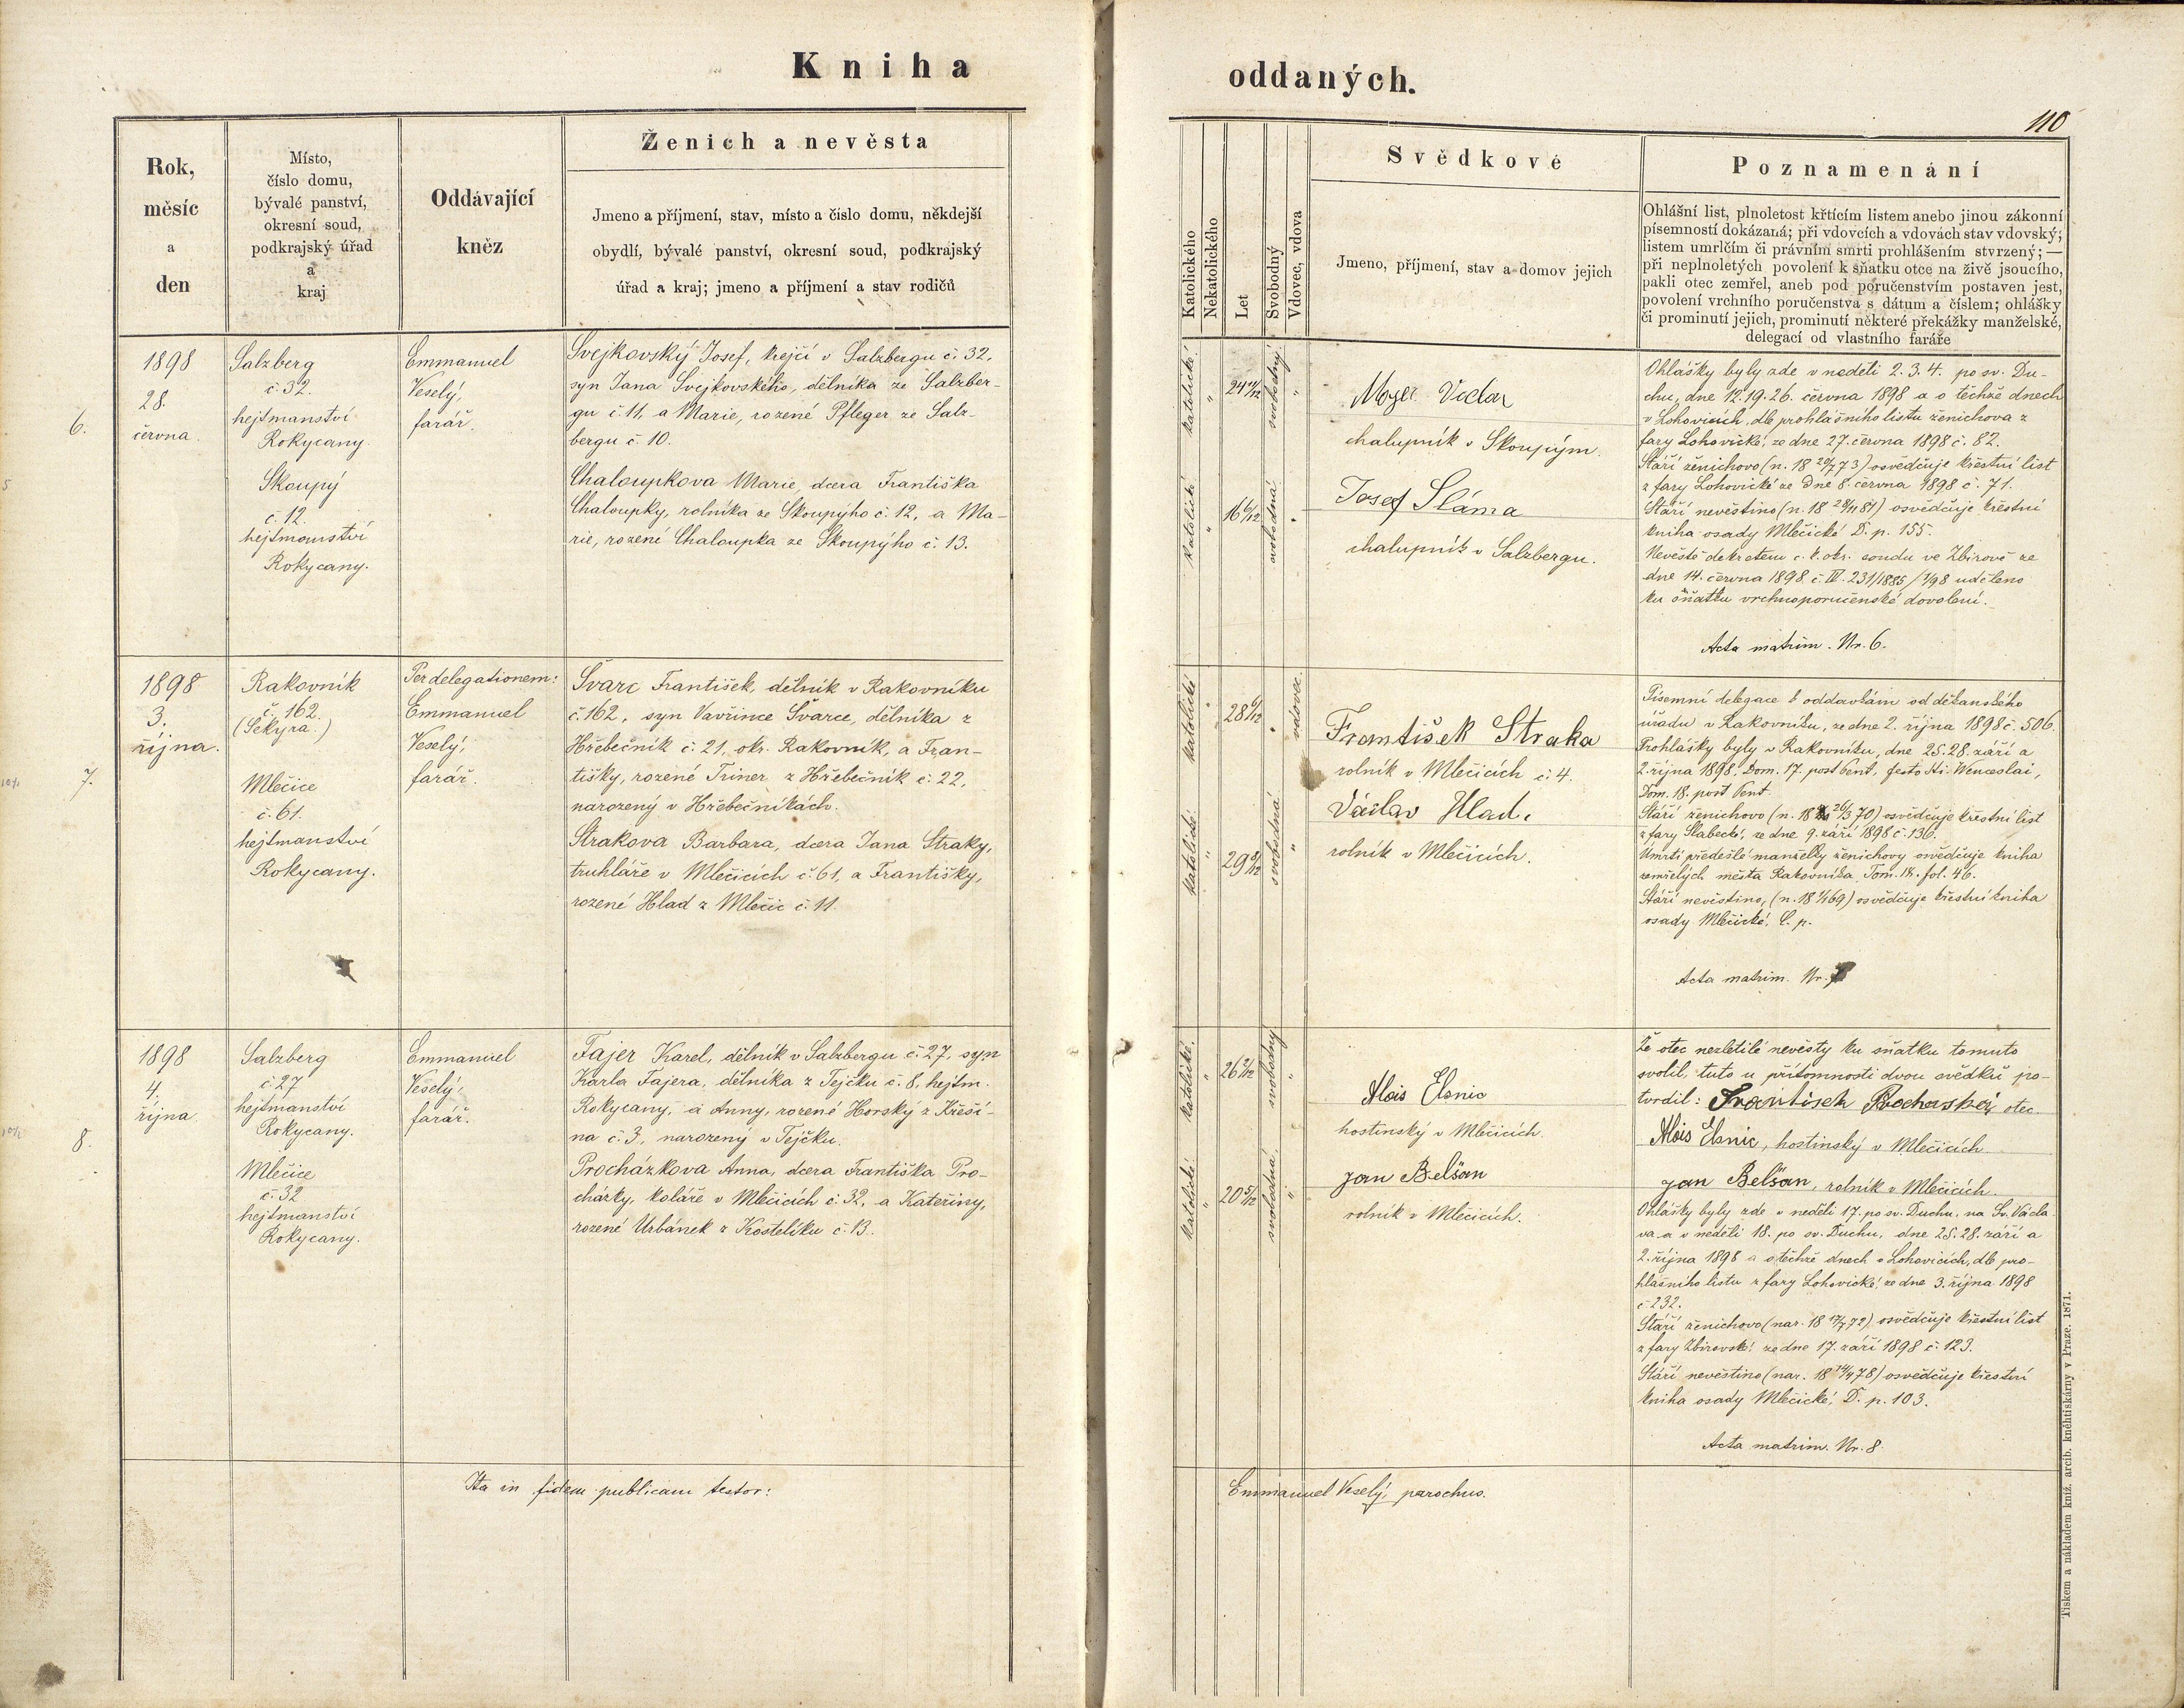 Kniha
oddaných.
110
Rok,
měsíc
a
den
Místo,
číslo domu,
bývalé panství,
okresní soud,
podkrajský úřad
a
kraj
Oddávající
kněz
Ženich a nevěsta
Jmeno a příjmení, stav, místo a čislo domu, někdejší
obydlí, bývalé panství, okresní soud, podkrajský
úřad a kraj; jmeno a příjmení a stav rodičů
Katolického
Nekatolického
Let
Svobodný
Vdovec, vdova
Svědkové
Jmeno, příjmení, stav a domov jejich
Poznamenání
Ohlášní list, plnoletost křtícím listem anebo jinou zákonní
písemností dokázaná; při vdovcích a vdovách stav vdovský;
listem umrlčím či právním smrti prohlášením stvrzený; —
při neplnoletých povolení k sňatku otce na živě jsoucího,
pakli otec zemřel, aneb pod poručenstvím postaven jest,
povolení vrchního poručenstva s dátum a číslem; ohlášky
či prominutí jejich, prominutí některé překážky manželské,
delegací od vlastního faráře
6.
1898
28.
června.
Salzberg
č. 32.
hejtmanství
Rokycany.
Skoupý
č. 12.
hejtmanství
Rokycany.
Emmanuel
Veselý,
farář.
Svejkovský Josef, krejčí v Salzbergu č. 32,
syn Jana Svejkovského, dělníka ze Salzber-
gu č. 11, a Marie, rozené Pfleger ze Salz-
bergu č. 10.
Chaloupkova Marie, dcera Františka
Chaloupky, rolníka ze Skoupýho č. 12, a Ma-
rie, rozené Chaloupka ze Skoupýho č. 13.
katolické
"
24 11/12
svobodný
"
katolické
"
16 6/12
svobodná
"
chalupník v Skoupým.
Josef Sláma
chalupník v Salzbergu.
Ohlášky byly zde v neděli 2. 3. 4. po sv. Du-
chu, dne 12. 19. 26. června 1898 a o těchže dnech
v Lohovicích, dle prohlášního listu ženichova z
fary Lohovické, ze dne 27. června 1898 č. 82.
Stáří ženichovo (n. 18 20/7 73) osvědčuje křestní list
z fary Lohovické ze dne 8. června 1898 č. 71.
Stáří nevěstino (n. 18 28/11 81) osvědčuje křestní
kniha osady Mlečické D. p. 155.
Nevěstě dekretem c. k. okr. soudu ve Zbirově ze
dne 14. června 1898 č. IV. 231/1885/1/98 uděleno
ku sňatku vrchnoporučenské dovolení.
Acta matrim. Nr. 6.
7.
1898
3.
října.
Rakovník
č. 162.
(Sekyra.)
Mlečice
č. 61.
hejtmanství
Rokycany.
Per delegationem:
Emmanuel
Veselý,
farář.
Švarc František, dělník v Rakovníku
č. 162, syn Vavřince Švarce, dělníka z
Hřebečník č. 21, okr. Rakovník, a Fran-
tišky, rozené Triner z Hřebečník č. 22,
narozený v Hřebečníkách.
Strakova Barbara, dcera Jana Straky,
truhláře v Mlečicích č. 61, a Františky,
rozené Hlad z Mlečic č. 11.
katolické
"
28 6/12
"
vdovec.
katolické
"
29 9/12
svobodná
"
František Straka
rolník v Mlečicích č. 4.
Václav Hlad.
rolník v Mlečicích.
Písemní delegace k oddavkám od děkanského
úřadu v Rakovníku, ze dne 2. října 1898 č. 506.
Prohlášky byly v Rakovníku, dne 25. 28. září a
2. října 1898. Dom. 17. post Pent., festo sti. Wenceslai,
Dom. 18. post Pent.
Stáří ženichovo (n. 18 26/3 70) osvědčuje křestní list
z fary Slabecké, ze dne 9. září 1898 č. 136.
Úmrtí předešlé manželky ženichovy osvědčuje kniha
zemřelých města Rakovníka, Tom. IX. fol. 46.
Stáří nevěstino, (n. 18 1/1 69) osvědčuje křestní kniha
osady Mlečické, C. p.
Acta matrim. Nr. 7
8.
1898
4.
října.
Salzberg
č. 27
hejtmanství
Rokycany.
Mlečice
č. 32
hejtmanství
Rokycany.
Emmanuel
Veselý,
farář.
Fajer Karel, dělník v Salzbergu č. 27, syn
Karla Fajera, dělníka z Tejčku č. 8, hejtm.
Rokycany, a Anny, rozené Horský z Křeší-
na č. 3, narozený v Tejčku.
Procházkova Anna, dcera Františka Pro-
cházky, koláře v Mlečicích č. 32, a Kateřiny,
rozené Urbánek z Kostelíku č. 13.
katolické.
"
26 2/12
svobodný
"
katolické
"
20 5/12
svobodná.
"
Alois Elsnic
hostinský v Mlečicích.
Jan Belšan
rolník v Mlečicích.
Že otec nezletilé nevěsty ku sňatku tomuto
svolil, tuto u přítomnosti dvou svědků po-
tvrdil: František otec
Alois Elsnic, hostinský v Mlečicích
Jan Belšan, rolník v Mlečicích.
Ohlášky byly zde v neděli 17. po sv. Duchu, na Sv. Václa-
va a v neděli 18. po sv. Duchu, dne 25. 28. září a
2. října 1898 a o těchže dnech v Lohovicích, dle pro-
hlášního listu z fary Lohovické, ze dne 3. října 1898
č. 232.
Stáří ženichovo (nar. 18 17/7 72) osvědčuje křestní list
z fary Zbirovské ze dne 17. září 1898 č. 123.
Stáří nevěstino (nar. 18 14/4 78) osvědčuje křestní
kniha osady Mlečické, D. p. 103.
Acta matrim. Nr. 8.
Ita in fidem publicam testor:
Emmanuel Veselý, parochus.
Tiskem a nákladem kníž. arcib. knéhtiskárny v Praze. 1871.